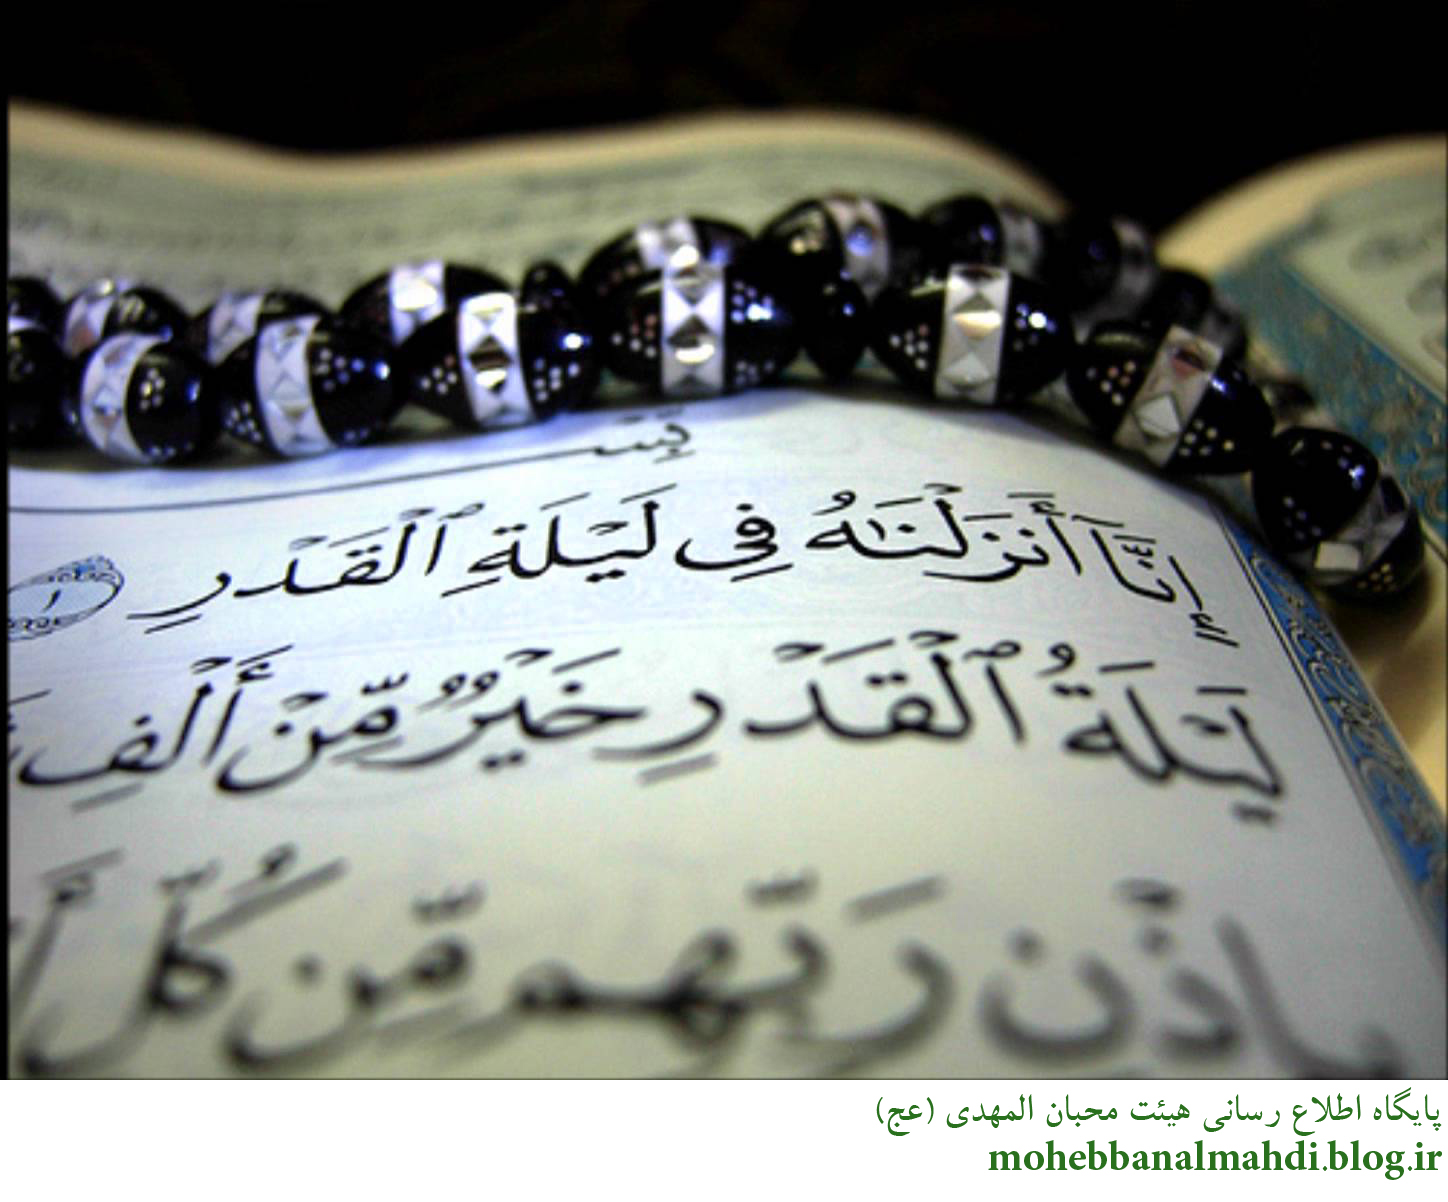 بِسْ
إِنَّآ أَنزَلْنَٰهُ فِى لَيْلَةِ ٱلْقَدْرِ ١
لَيْلَةُ ٱلْقَدْرِ خَيْرٌ مِّنْ أَلْفِ
بِإِذْنِ رَبِّهِم مِّن كُلِّ
پایگاه اطلاع رسانی هیئت محبان المهدی (عج)
mohebbanalmahdi.blog.ir